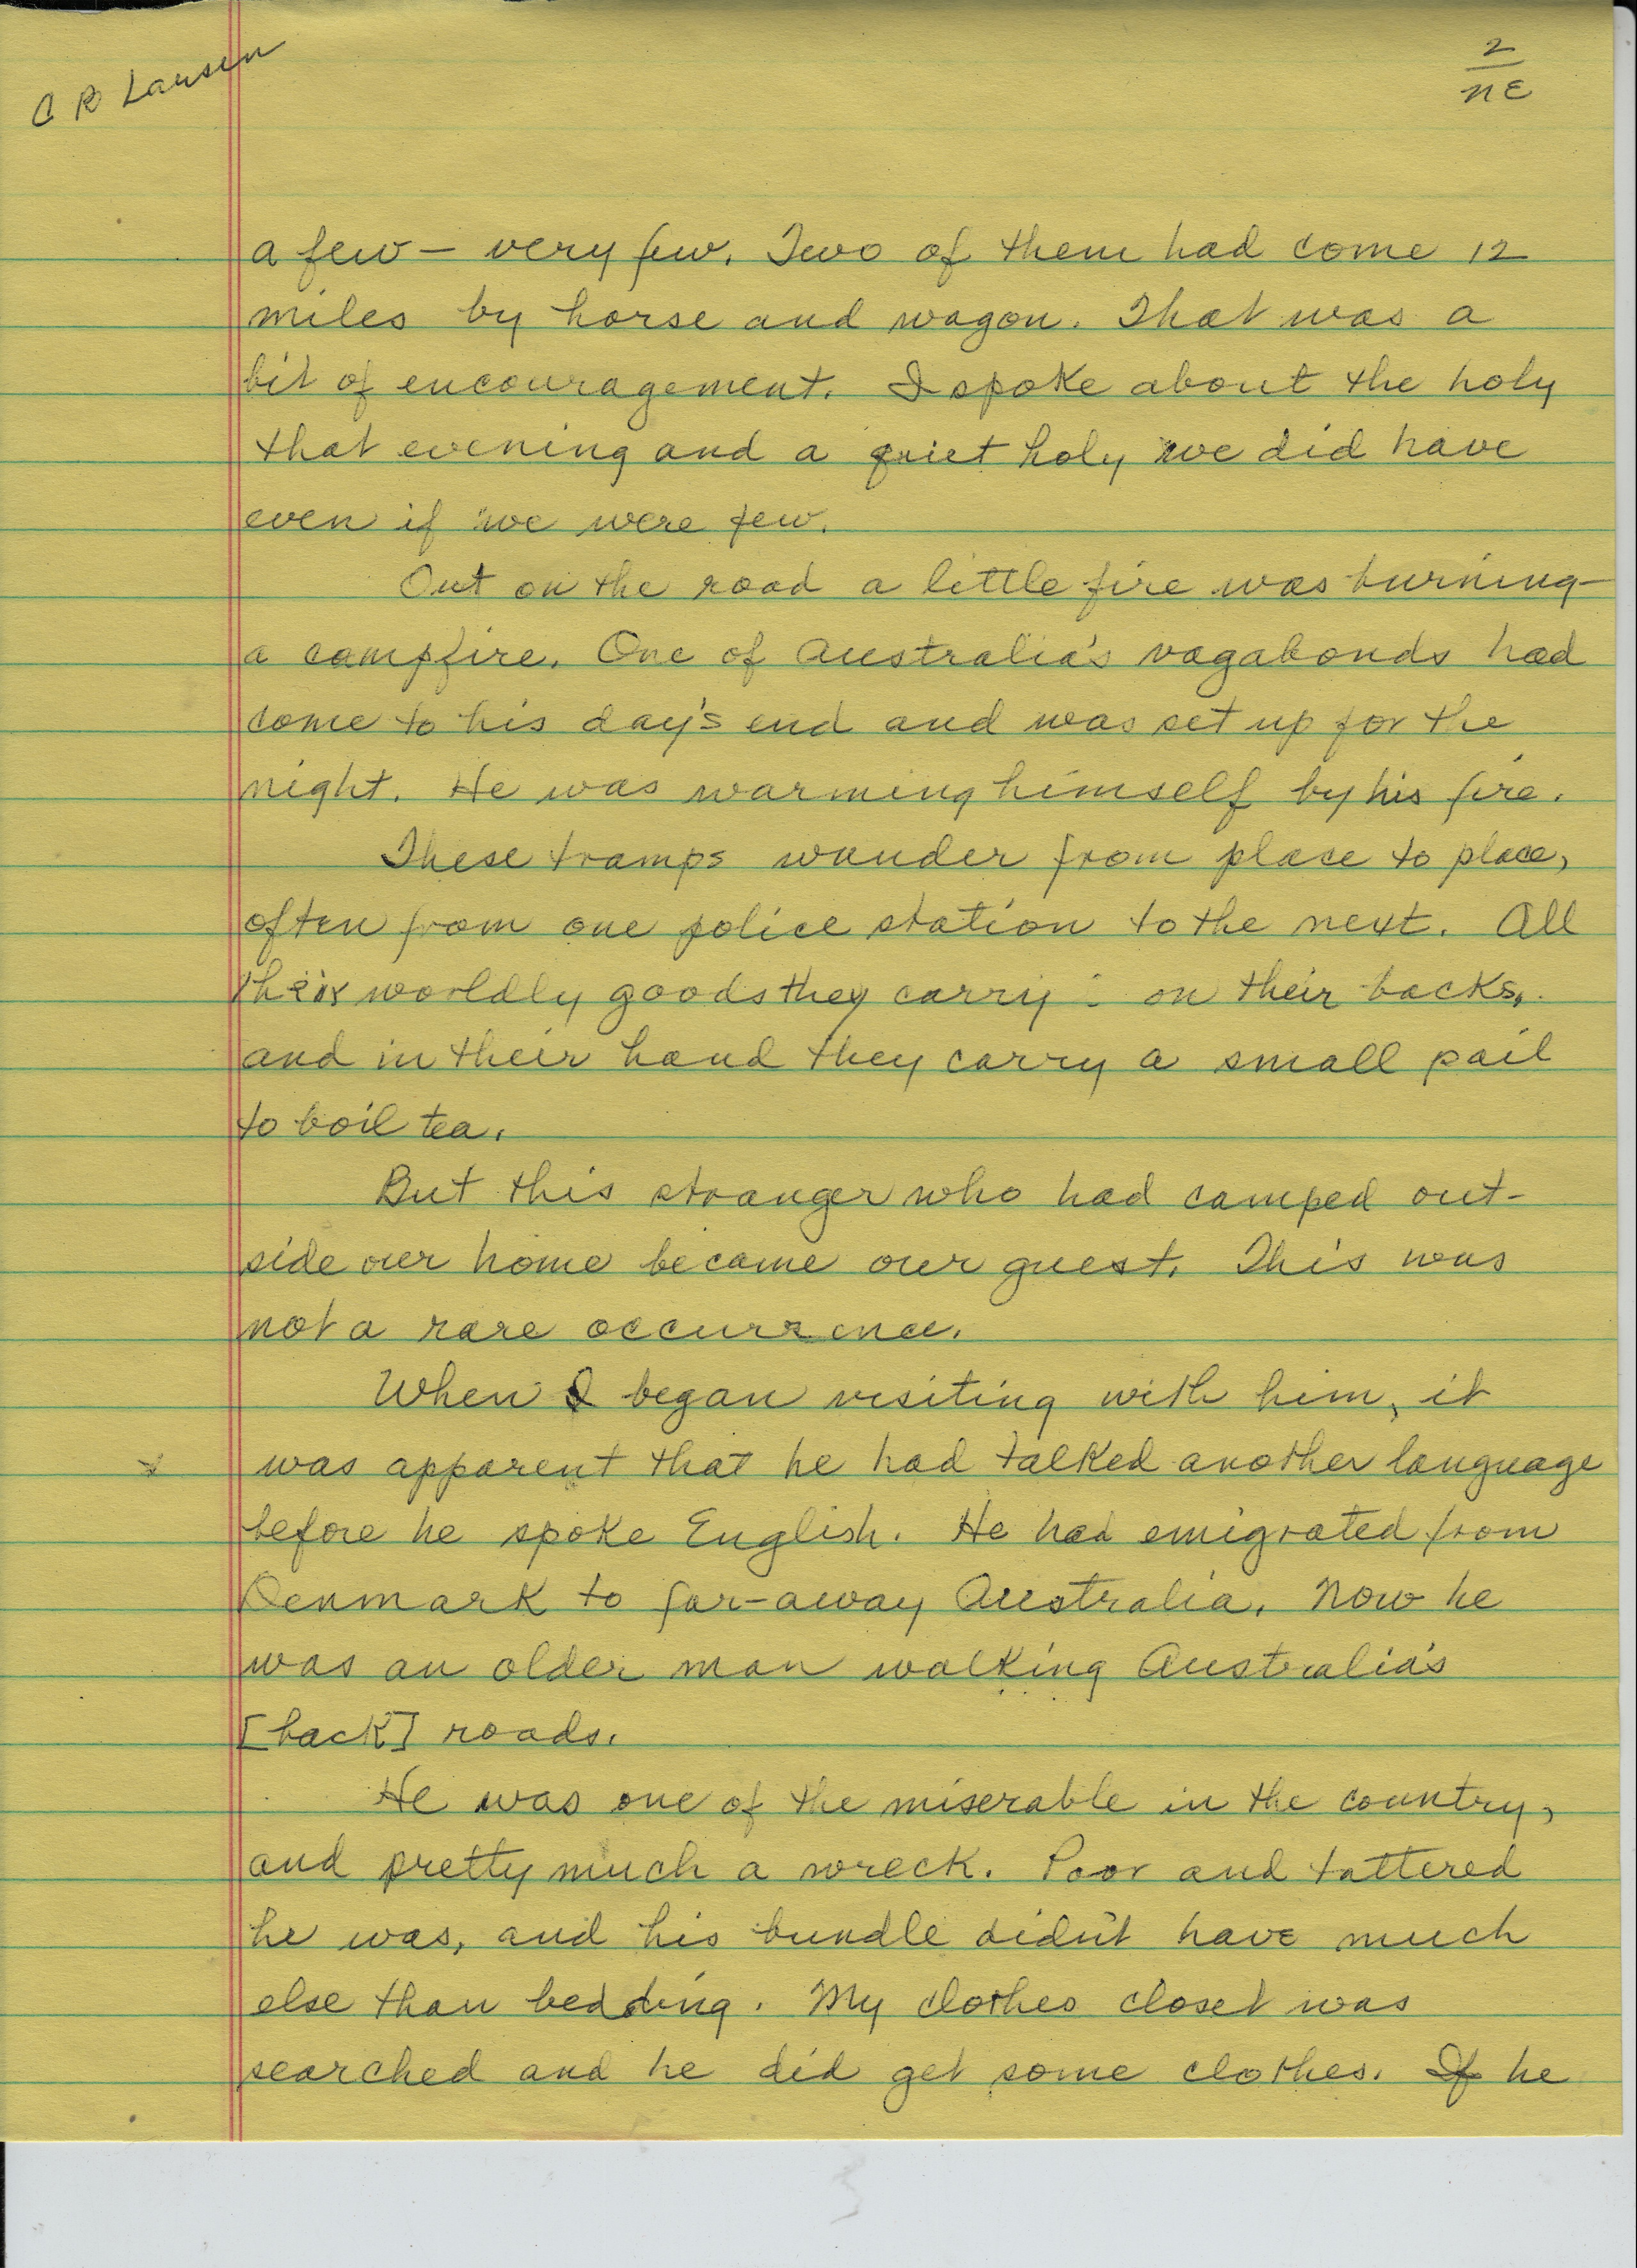 C R Larsen
2
NE
a few – very few. Two of them had come 12
miles by horse and wagon. That was a
bit of encouragement. I spoke about the holy
that evening and a quiet holy we did have
even if we were few.
Out on the road a little fire was burning –
a campfire. One of Australia's vagabonds had
come to his day's end and was set up for the
night. He was warming himself by his fire.
These tramps wander from place to place,
often from one police station to the next. All
their worldly goods they carry – on their backs,
and in their hand they carry a small pail
to boil tea.
But this stranger who had camped out-
side our home became our guest. This was
not a rare occurrence.
When I began visiting with him, it
was apparent that he had talked another language
before he spoke English. He had emigrated from
Denmark to far-away Australia. Now he
was an older man walking Australia's
[back] roads.
He was one of the miserable in the country,
and pretty much a wreck. Poor and tattered
he was, and his bundle didn't have much
else than bedding. My clothes closet was
searched and he did get some clothes. If he